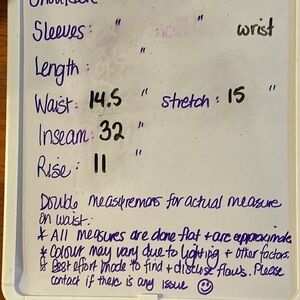 Shoulder
Sleeves: " " wrist
Length: "
Waist: 14.5 " stretch: 15 "
Inseam: 32 "
Rise: 11 "
Double measuremens for actual measure
on waist.
* All measures are done flat + are approximate
* Colour may vary due to lighting + other factors.
* Best effort made to find + disclose flaws. Please
contact if there is any issue ☺